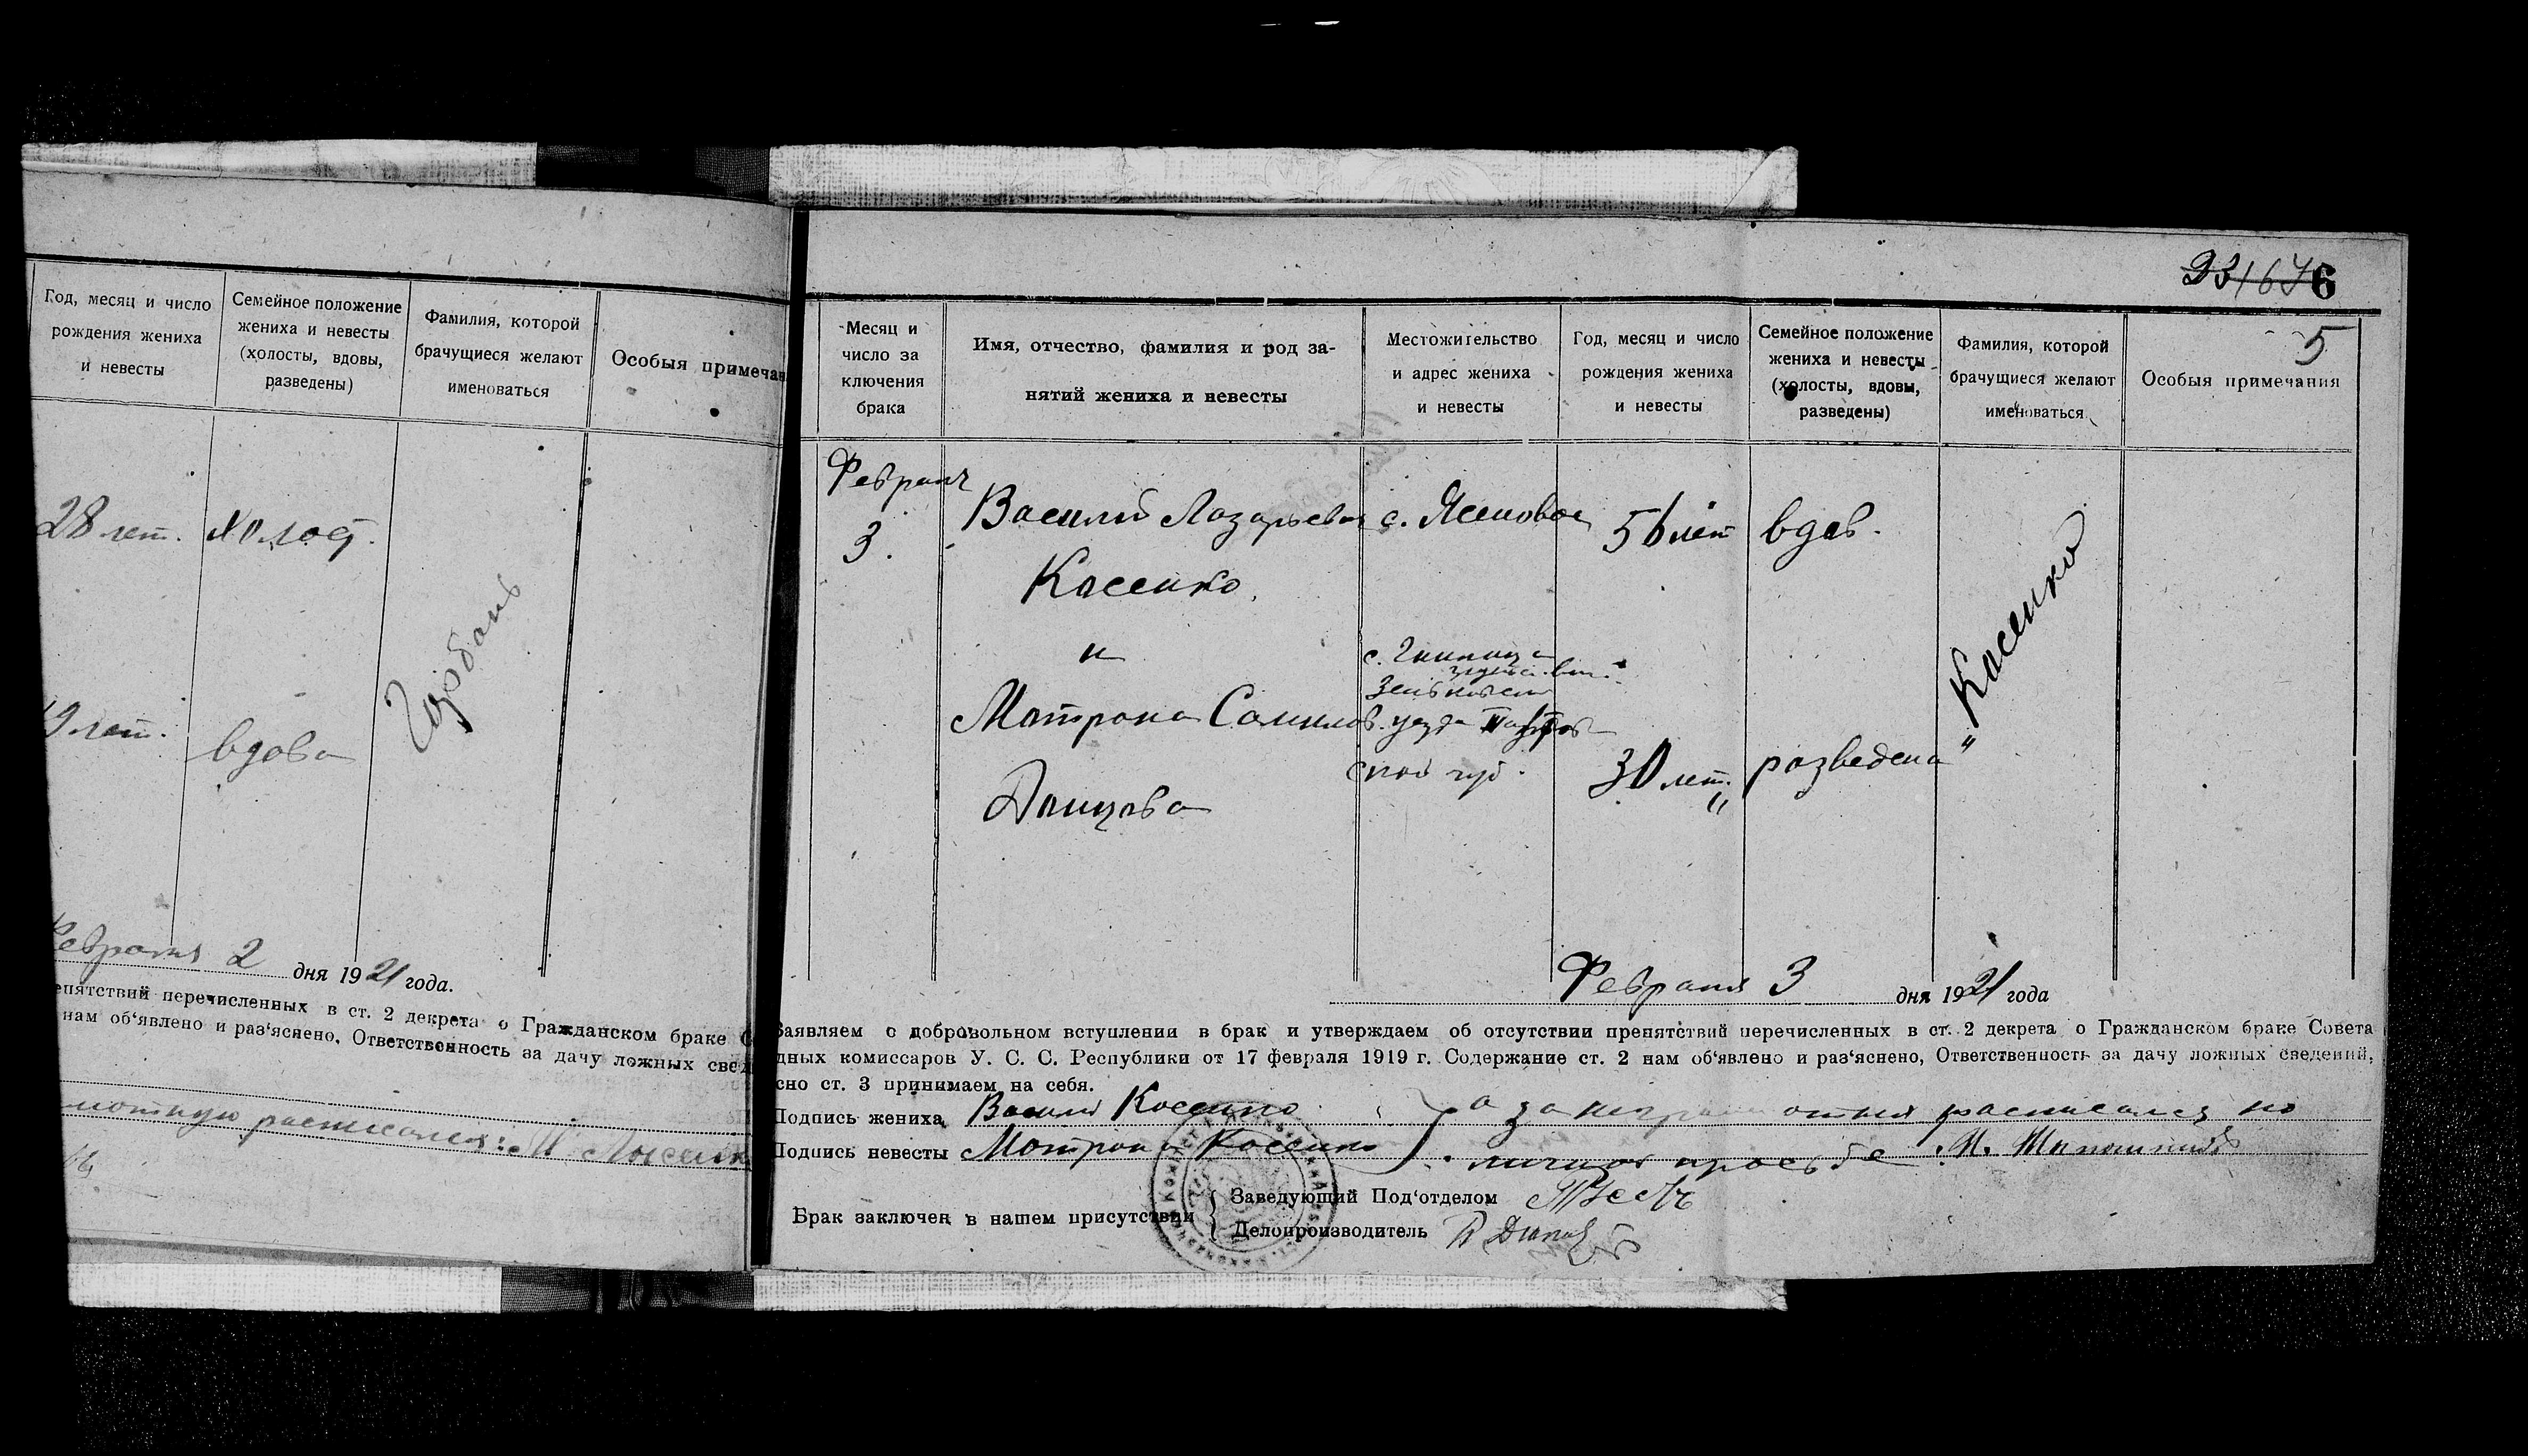 Год, месяц и число
рождения жениха
и невесты
Семейное положение
жениха и невесты
(холосты, вдовы,
разведены)
Фамилия, которой
брачущиеся желают
именоваться
Особыя примечан
28 лет. холост.
9 лет. вдова
Февраля 2 дня 1921 года.
епятствий перечисленных в ст. 2 декрета о Гражданском браке С
нам об'явлено и раз'яснено, Ответственность за дачу ложных свед
мотную расписался:
6
5
Месяц и
число за
ключения
брака
Имя, отчество, фамилия и род за-
нятий жениха и невесты
Местожительство
и адрес жениха
и невесты
Год, месяц и число
рождения жениха
и невесты
Семейное положение
жениха и невесты
(холосты, вдовы,
разведены)
Фамилия, которой
брачущиеся желают
именоваться
Особыя примечания
Февраля
3.
Василий Лазарьевич
Касенко
и
Матрона Самилов.
Данцева
с. Ясеновое
с.
уезда
ской губ.
56 лет
30 лет.
вдов.
разведена
„Касенко"
Февраля 3 дня 1921 года
Заявляем о добровольном вступлении в брак и утверждаем об отсутствии препятствий перечисленных в ст. 2 декрета о Гражданском браке Совета
дных комиссаров У. С. С. Республики от 17 февраля 1919 г. Содержание ст. 2 нам об'явлено и раз'яснено, Ответственность за дачу ложных сведений,
сно ст. 3 принимаем на себя.
Подпись жениха Василий Косенко а за неграмотных расписался по
Подпись невесты Матрона Косенко личной просьбе: И.
Брак заключен в нашем присутствии
Заведующий Под'отделом
Делопроизводитель